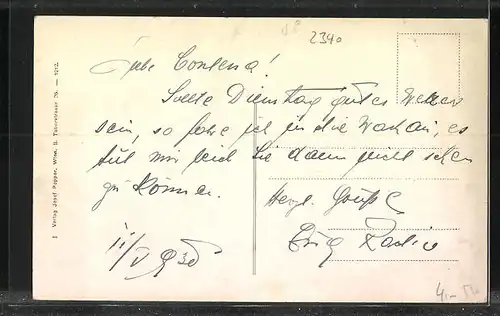 2390
Liebe Contessa!
Sollte Dienstag gutes Wetter
sein, so fahre ich in die Wachau, es
tut mir leid Sie dann nicht sehen
zu können.
Herzl. Grüße
11/V 930
I Verlag Josef Popper, Wien, II. Taborstrasse 76. — 1912.
4.-